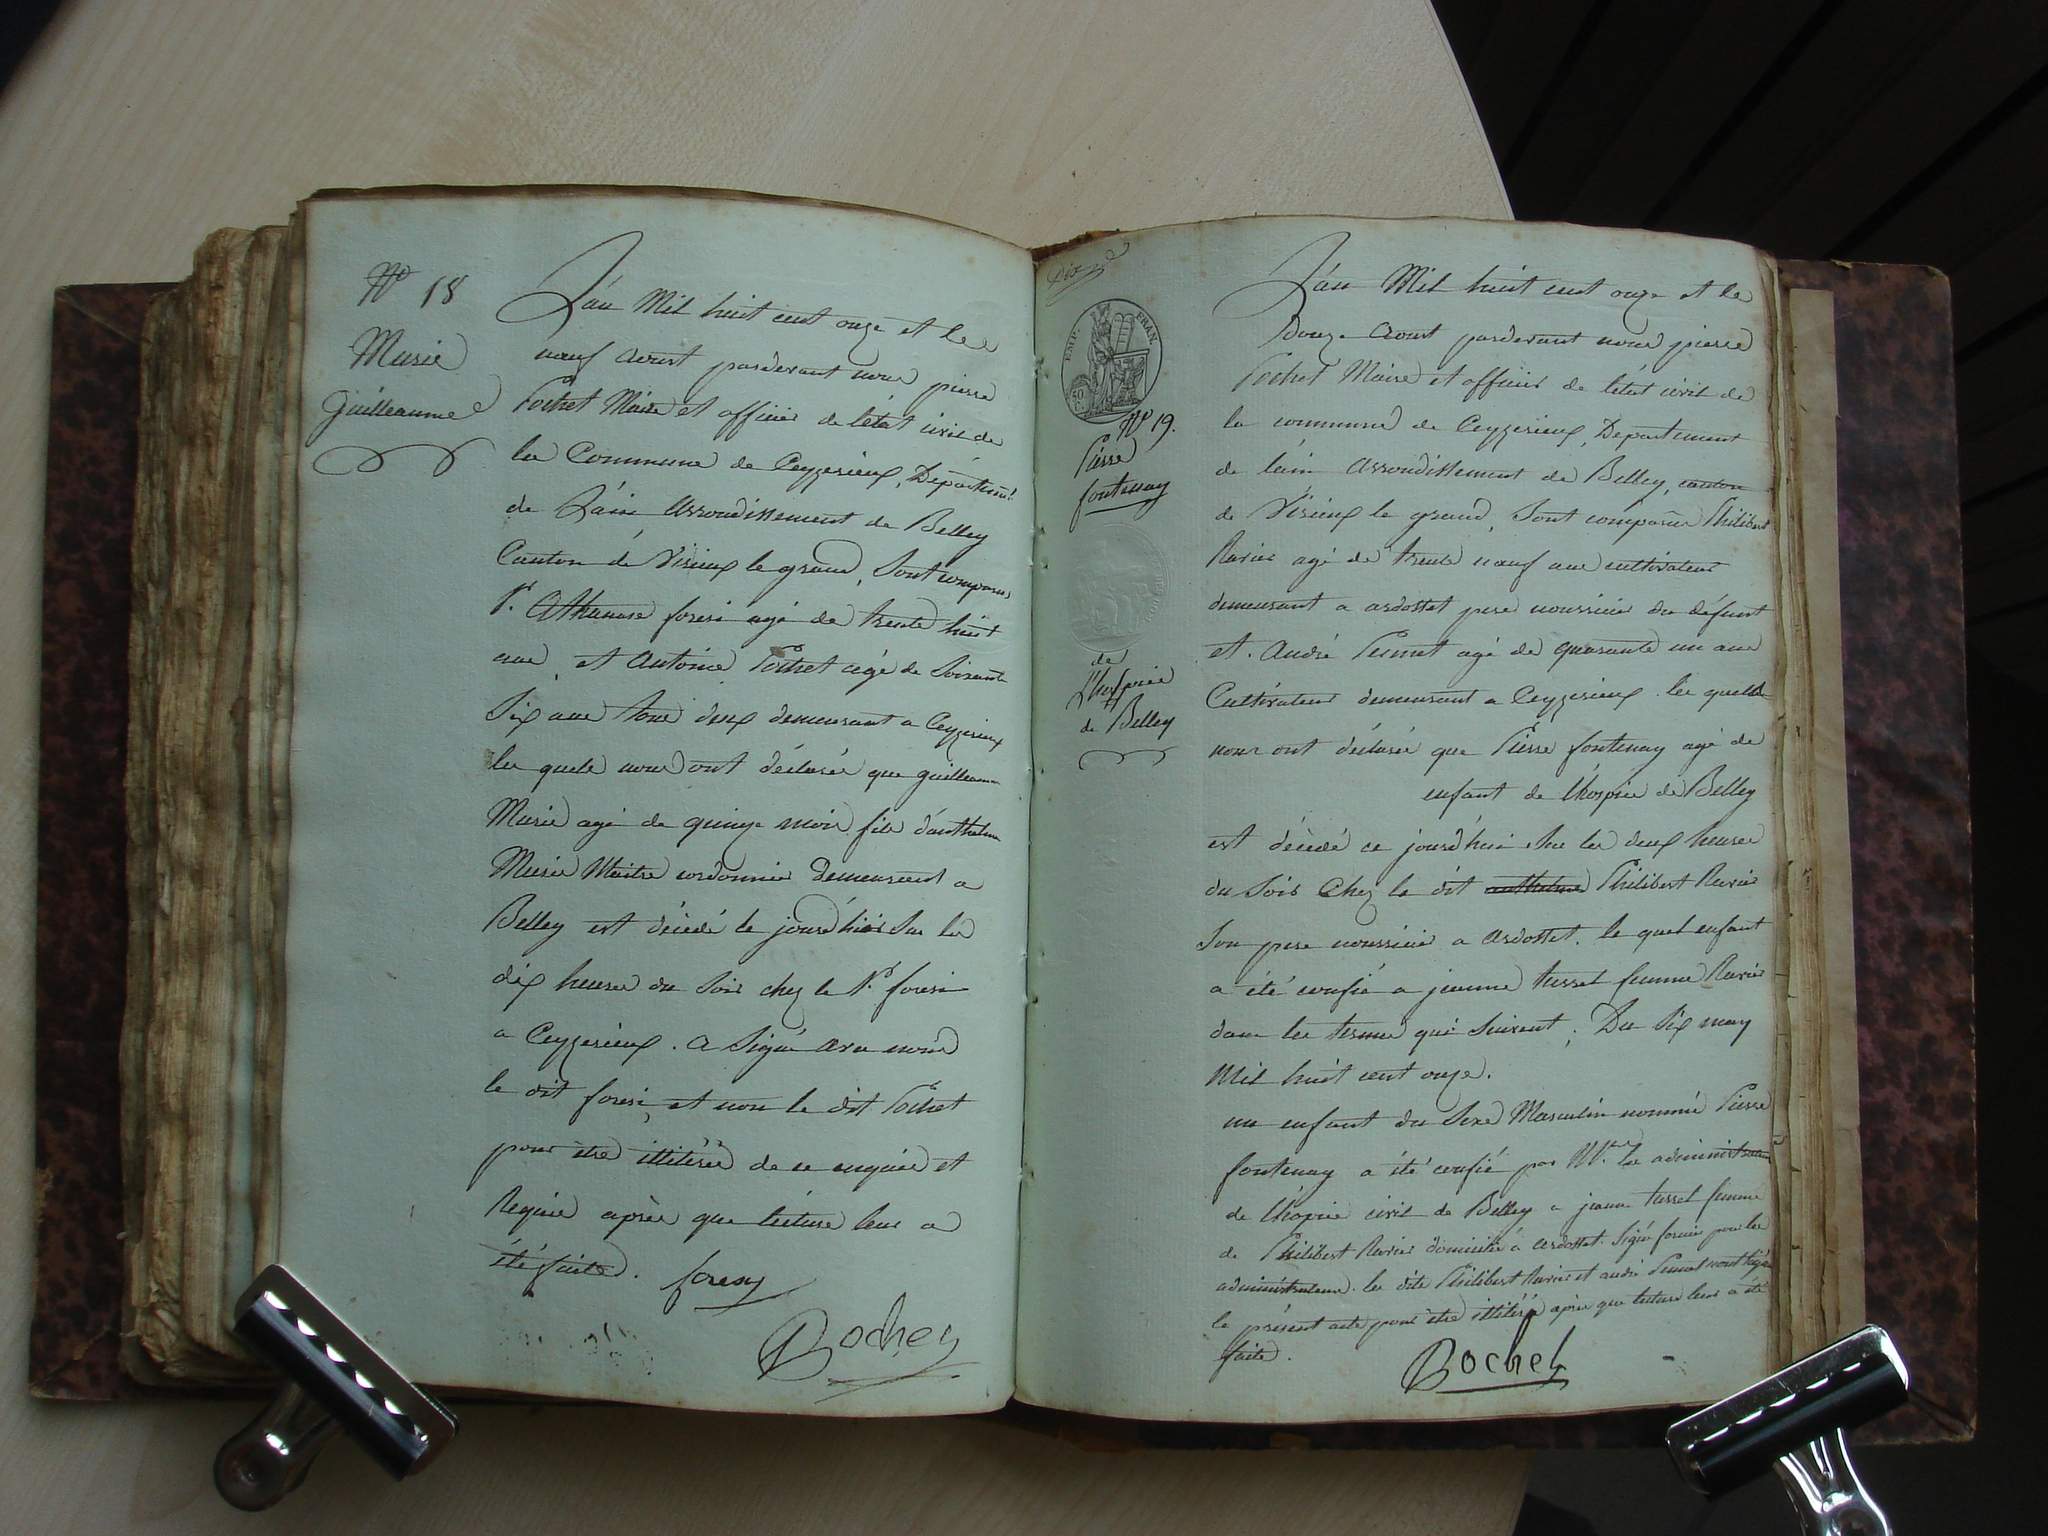 N° 18
Murié
Guilleaume
L'an Mil huit cent onze et le
neuf Aoust pardevant nous pierre
Pochet Maire et officier de l'état civil de
la Commune de Ceyzerieux, Départem.t
de L'ain Arrondissement de Belley
Canton de Virieux le grand, Sont comparus
S.r Athanase foresi agé de trente huit
ans, et Antoine Pochet agé de Soixante
Six ans tous deux demeurant a Ceyzerieux
les quels nous ont déclarés que guilleaume
Murié agé de quinze mois fils d'anthelme
Murié Maitre cordonnié Demeurant a
Belley est décédé le jourd'hier Sur les
dix heures du Soir chez le S.r foresi
a Ceyzerieux. A Signé avec nous
le dit foresi, et non le dit Pochet
pour être illitéré de ce enquis et
Requis après que lecture leur a
été faite. foresy
Bochey
Dix
EMP. FRAN.
50
N° 19.
Pierre
fontenay
de
L'hospice
de Belley
L'an Mil huit cent onze et le
Douze Aoust pardevant nous pierre
Pochet Maire et officier de l'état civil de
la commune de Ceyzerieux, Departement
de l'ain Arrondissement de Belley, canton
de Virieux le grand, Sont comparus Philibert
Ravier agé de trente neuf ans cultivateur
demeurant a ardosset pere nourricié du défunt
et André Pennet agé de quarante un ans
Cultivateur demeurant a Ceyzerieux. les quels
nous ont déclarés que Pierre fontenay agé de
enfant de l'hospice de Belley
est décédé ce jourd'hui Sur les deux heures
du Soir Chez le dit anthelme Philibert Ravier
Son pere nourricié a Ardosset. le quel enfant
a été confié a jeanne tusset femme Ravier
dans les termes qui Suivent; Du Six may
Mil huit cent onze.
un enfant du Sexe Masculin nommé Pierre
fontenay a été confié par M.rs les administrateurs
de l'hospice civil de Belley a jeanne tusset femme
de Philibert Ravier domicilié a Ardosset. Signé pour les
administrateurs. les dits Philibert Ravier et andré Pennet n'ont signé
le présent acte pour être illitérés après que lecture leur a été
faite.
Bochet